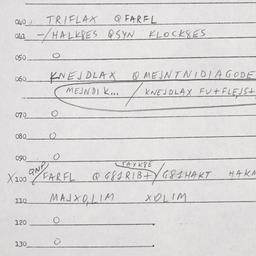 040. TRIFLAX QFARFL
041 -/HALK8ES QSYN KLOCK8ES
050. O
060. KNEJDLAX QMEJNTNIDIAGODE
(MEJNDIK... / KNEJDLAX FU+FLEJS+
070 O
080 O
090 O
QNP TAXK8E
X100 /FARFL QG81RIB+/G81HAKT HAKN
110 MAJXO,LIM XOLIM
120 O
130 O